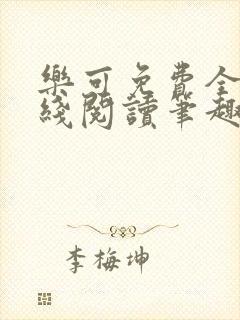 樂可免費全
綫閱讀筆趣
李梅坤